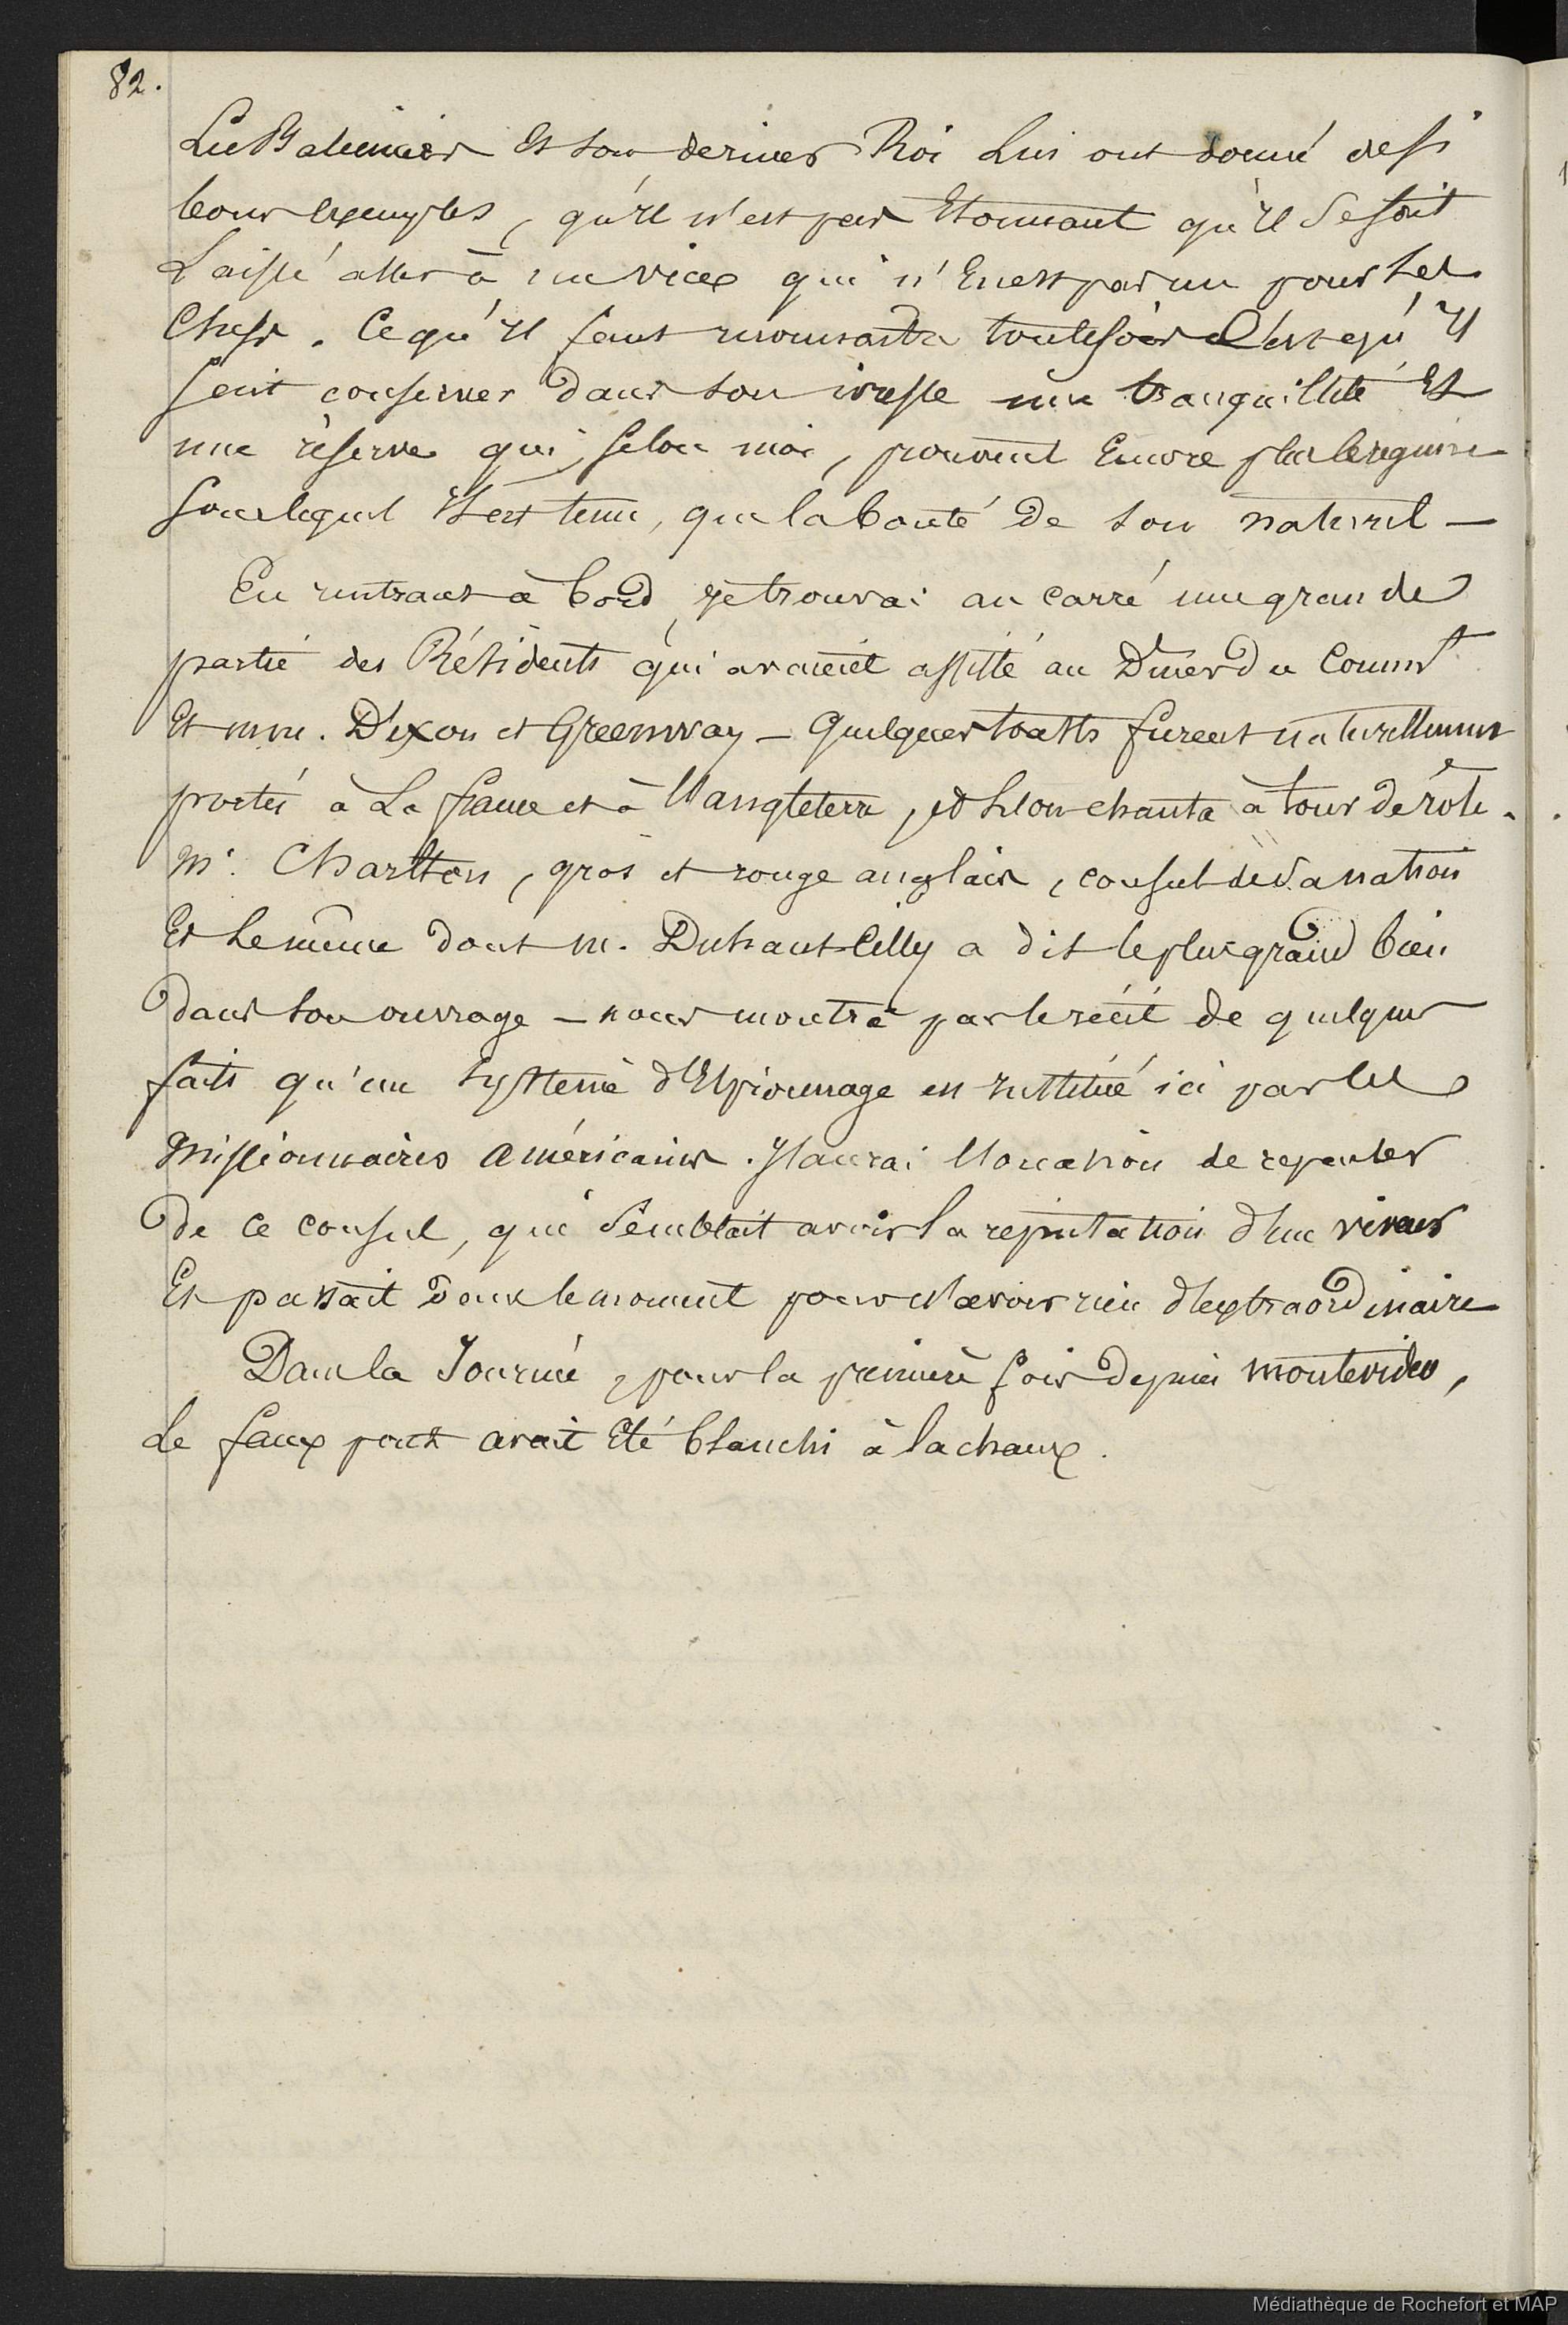 82.
Les Baleiniers Et son dernier Roi Lui ont donné de si
bons exemples, qu'il n'est pas Etonnant qu'il Se soit
Laissé aller à un vice qui n'En est pas un pour les
Chefs. Ce qu'il faut reconnaitre toutefois C'est qu'il
sait conserver dans son ivresse une tranquillité Et
une réserve qui, selon moi, prouvent Encore plus le régime
sous lequel Il est tenu, que la bonté de son naturel —
En rentrant à bord, je trouvai au carré une grande
partie des Résidents qui avaient assisté au Diner du Commt
Et mm. Dixon et Greenway — Quelques toasts furent naturellement
portés à La france et à l'angleterre, et l'on chanta à tour de rôle.
Mr. Charlton, gros et rouge anglais, consul de Sa nation
Et le même dont m. Duhaut-Cilly a dit le plus grand bien
dans son ouvrage — nous montra par le récit de quelques
faits qu'un système d'Espionnage est institué ici par les
missionnaires américains. J'aurai l'occasion de reparler
de ce consul, qui Semblait avoir la réputation d'un viveur
Et passait dans le moment pour n'avoir rien d'extraordinaire
Dans la Journée, pour la première fois depuis montevideo,
Le faux pont avait Eté blanchi à la chaux.
Médiathèque de Rochefort et MAP